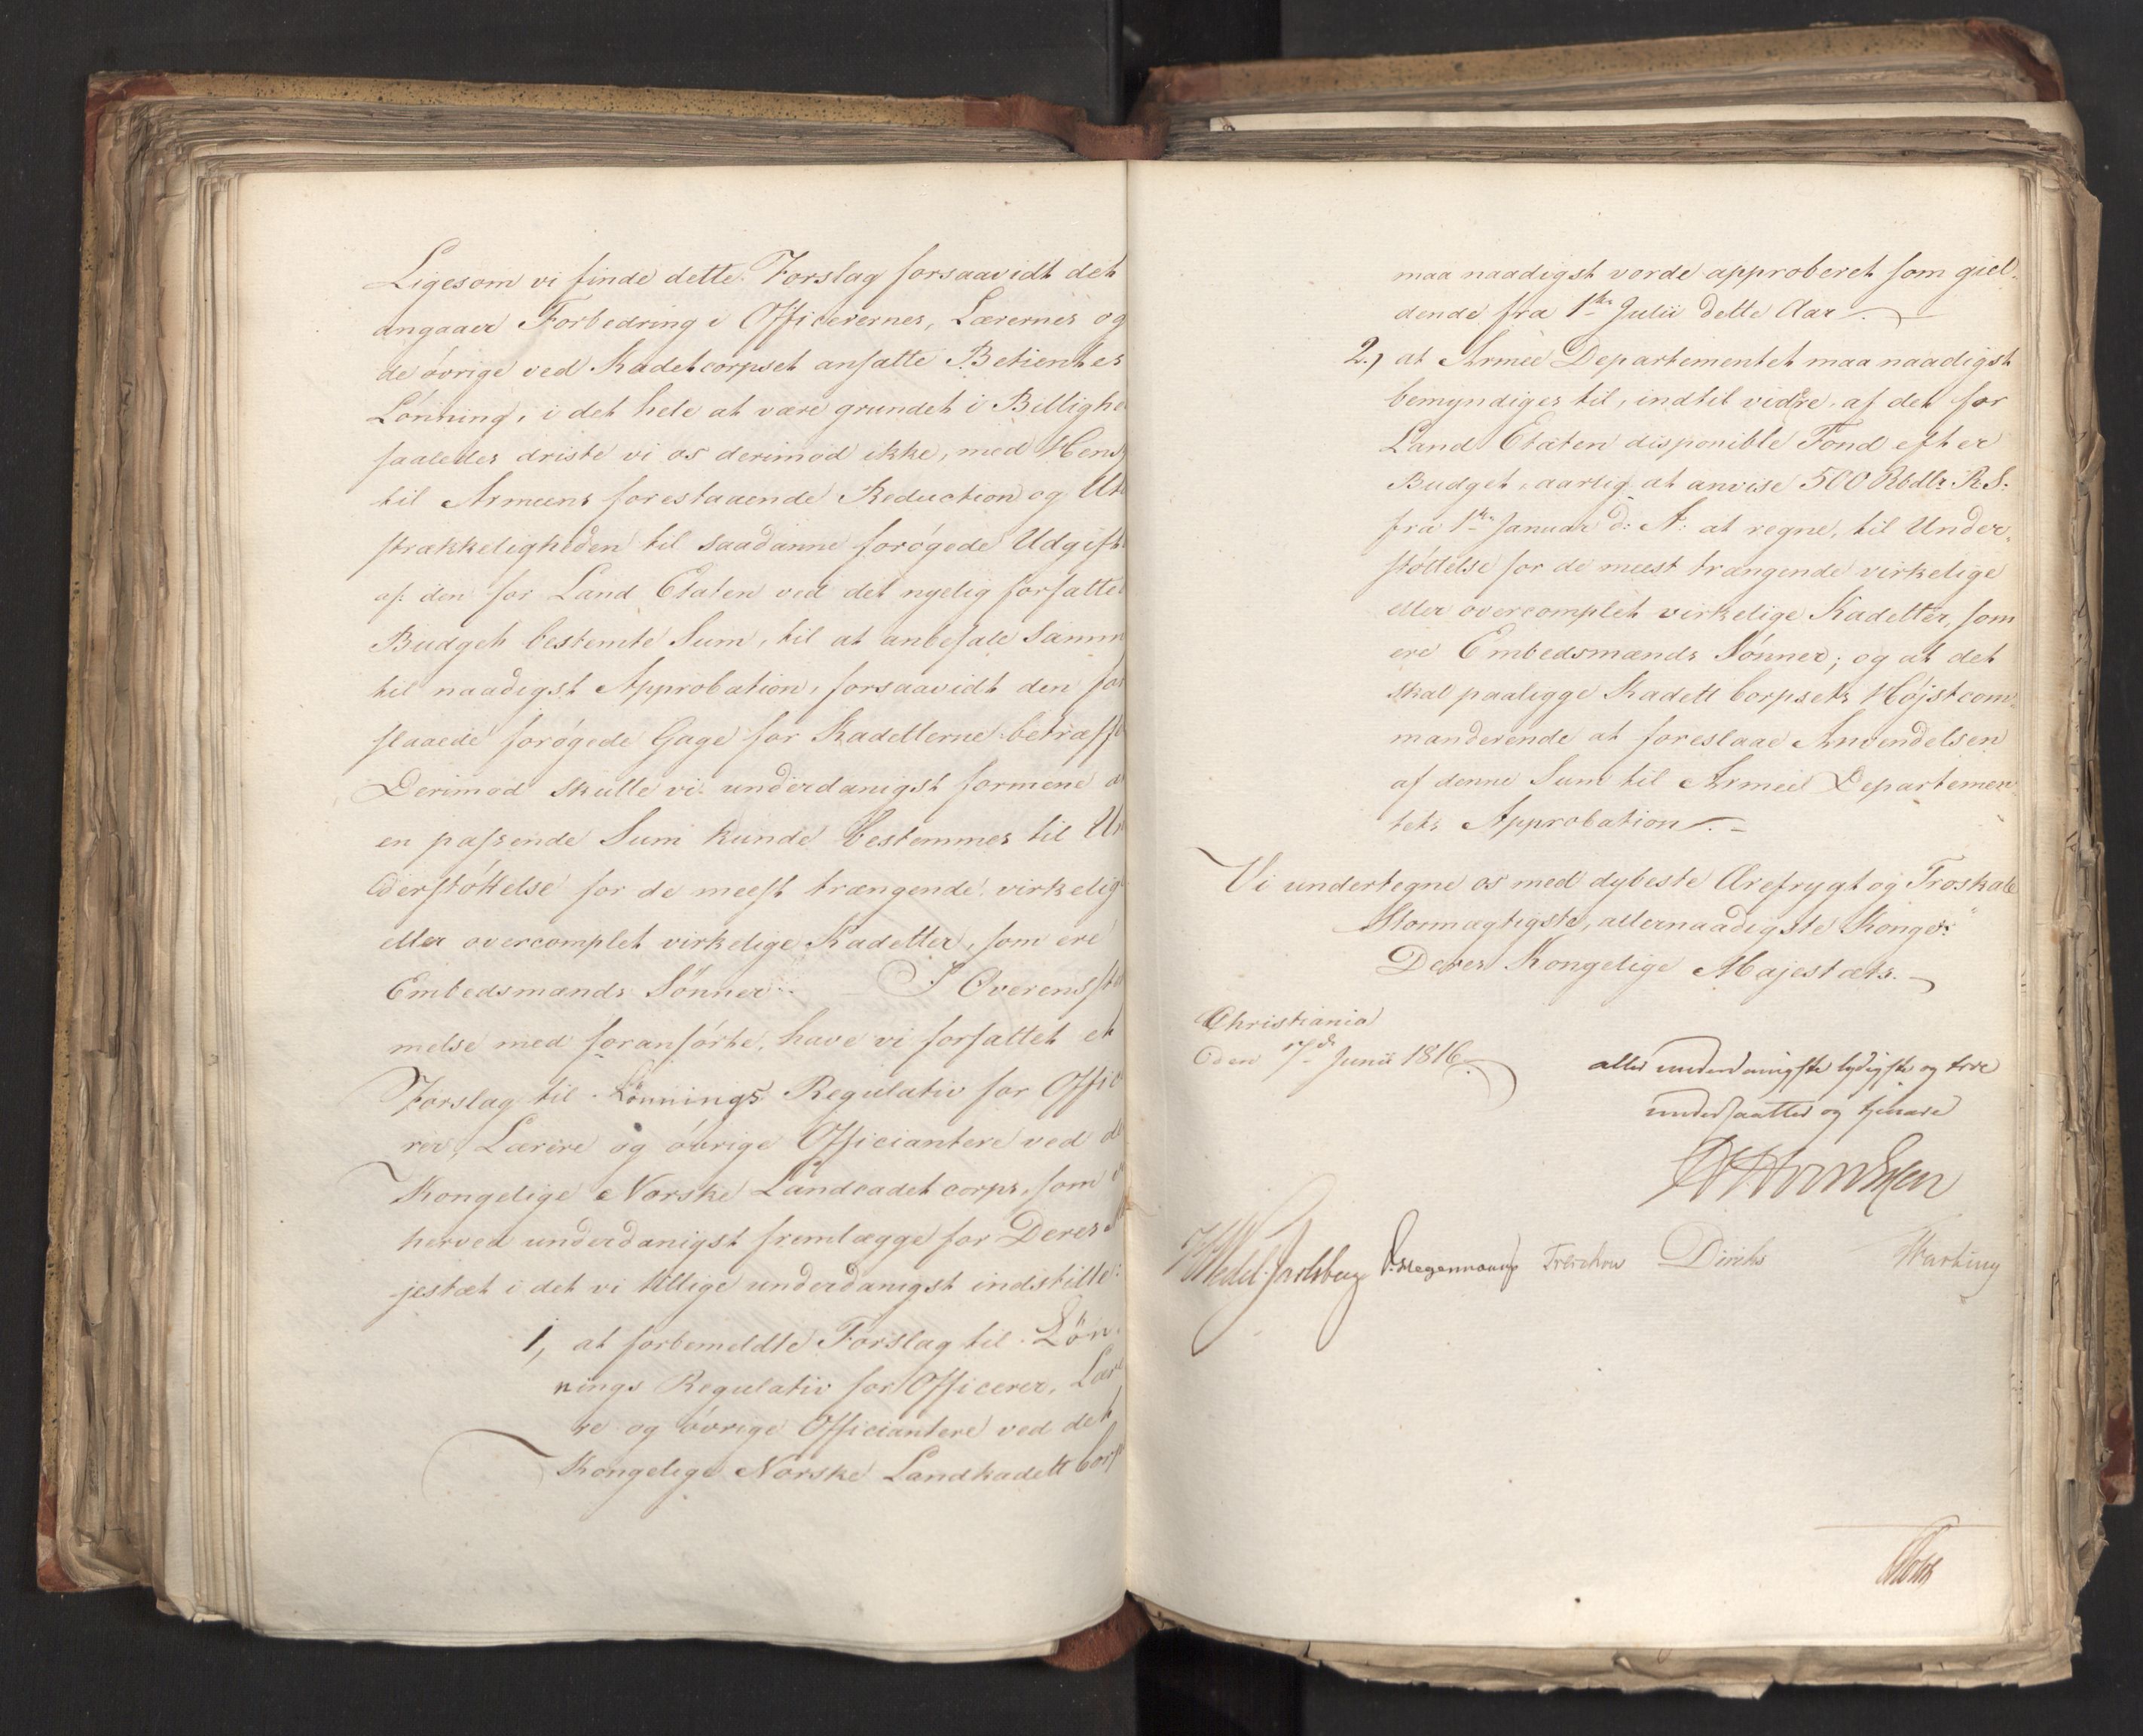 Ligesom vi finde dette Forslag forsaavidt det
angaaer Forbedring i Officerernes, Lærernes og
de øvrige ved Kadetcorpset ansatte Betientes
Lønning, i det hele at være grundet i Billighe
saaledes driste vi os derimod ikke, med Hens
til Armeens forestaaende Reduction og Ut
strækkeligheden til saadanne forøgede Udgift
af den for Land Etaten ved det nyelig forfatte
Budget bestemte Sum, til at anbefale samm
til naadigst Approbation, forsaavidt den for
slaaede forøgede Gage for Kadetterne betræffe
Derimod skulle vi underdanigst formene a
en passende Sum kunde bestemmes til Un
derstøttelse for de meest trængende virkelig
eller overcomplet virkelige Kadetter, som ere
Embedsmænds Sønner. I Overensste
melse med foranførte, have vi forfattet et
Forslag til Lønnings Regulativ for Offic
rer, Lærere og øvrige Officiantere ved de
Kongelige Norske Landcadet corps, som v
herved underdanigst fremlægge for Deres M
jestæt i det vi tillige underdanigst indstille:
1, at forbemeldte Forslag til Løn-
nings Regulativ for Officerer, Lære
re og øvrige Officiantere ved det
Kongelige Norske Landkadett Corps
maa naadigst vorde approberet som giel-
dende fra 1ste Julii dette Aar.
2.) at Armee Departementet maa naadigst
bemyndiges til, indtil vidre, af det for
Land Etaten disponible Fond efter
Budget, aarlig at anvise 500 Rbdlr R.S.
fra 1ste Januar d: A: at regne, til Under-
støttelse for de meest trængende virkelige
eller overcomplet virkelige Kadetter, som
ere Embedsmænds Sønner; og at det
skal paaligge Kadett Corpsets Højstcom-
manderende at foreslaae Anvendelsen
af denne Sum til Armee Departemen-
tets Approbation.
Vi undertegne os med dybeste Ærefrygt og Troskab
Stormægtigste, allernaadigste Konge!
Deres Kongelige Majestæts.
Christiania
den 17de Junii 1816.
aller underdanigste lydigste og troe
undersaatter og tjenere
Wedel Jarlsberg Hegermann Treschow Diriks